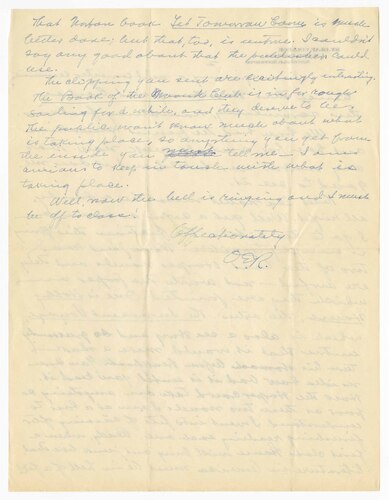 That Norton book Let Tomorrow Come, is much
better done; but that, too, is routine. I couldn't
say any good about that the publishers could
use.
The clipping you sent are excitingly interesting.
The Book of the Month Club is in for rough
sailing for a while, and they deserve to be.
The public won't know much about what
is taking place, so anything you get from
the inside you must tell me. I am
anxious to keep in touch with what is
taking place.
Well, now the bell is ringing and I must
be off to class.
Affectionately
O.E.R.